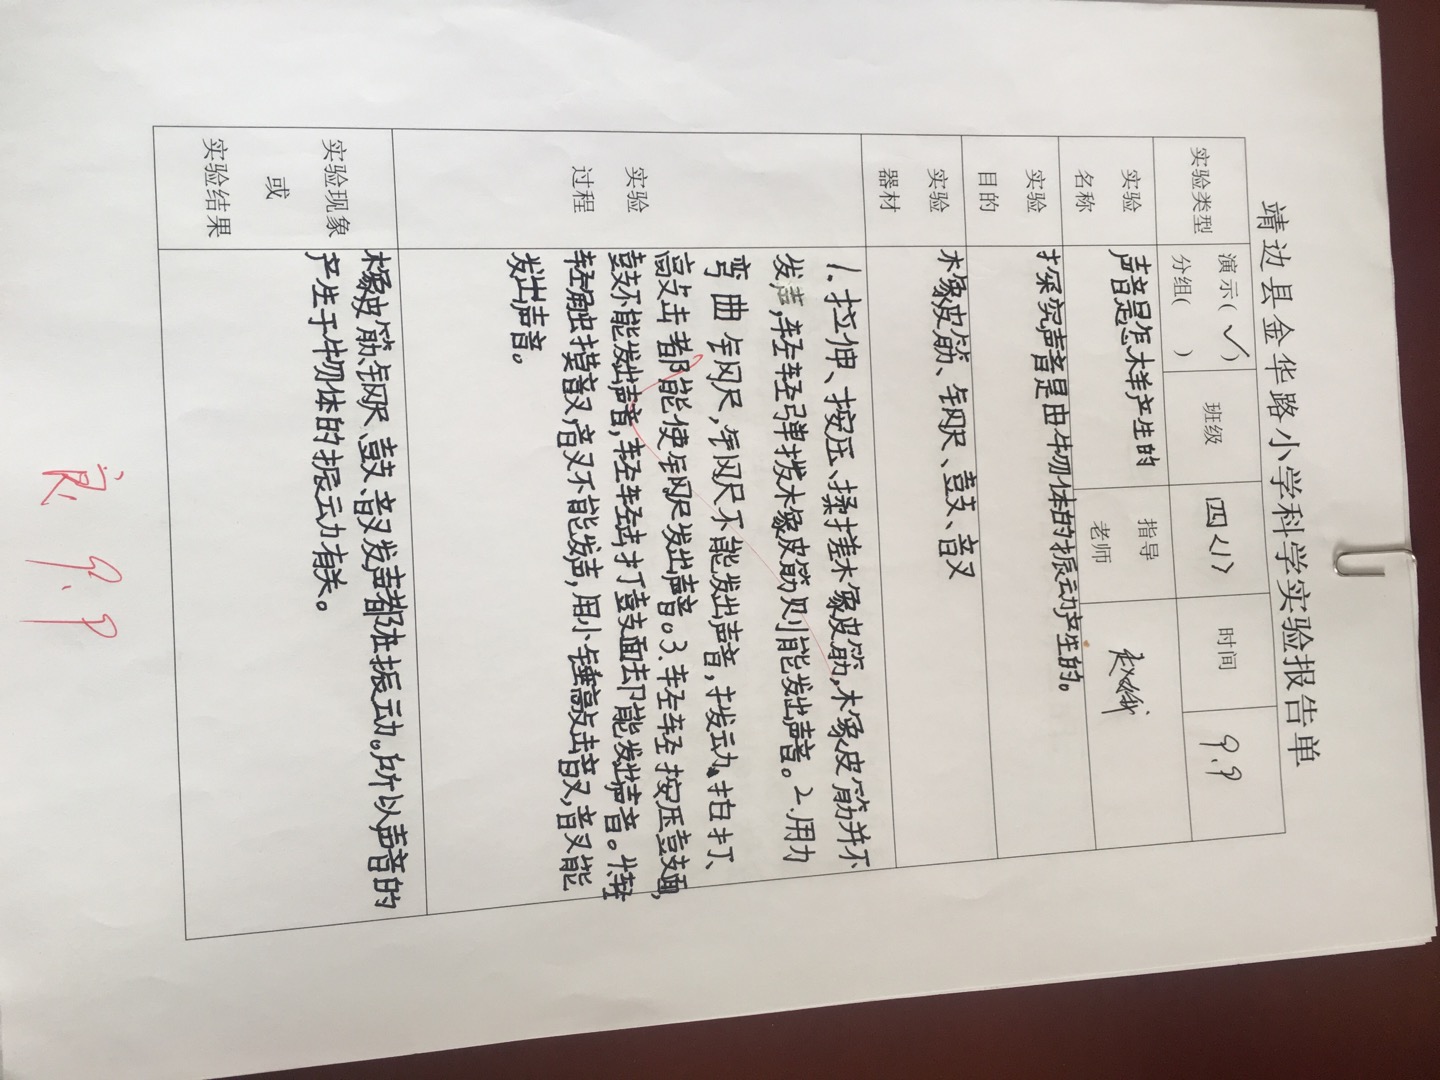 靖边县金华路小学科学实验报告单
实验类型
演示(✓)
分组( )
班级
四<1>
时间
9.9
实验
名称
声音是怎样产生的
指导
老师
实验
目的
探究声音是由物体的振动产生的。
实验
器材
木象皮筋、钢尺、鼓、音叉
实验
过程
1.拉伸、按压、揉搓木象皮筋,木象皮筋并不
发声,轻轻弹拨木象皮筋则能发出声音。2.用力
弯曲钢尺,钢尺不能发出声音,拨动、拍打、
敲击都能使钢尺发出声音。3.轻轻按压鼓面,
鼓不能发出声音,轻轻击打鼓面却能发出声音。4.轻
轻触摸音叉,音叉不能发声,用小锤敲击音叉,音叉能
发出声音。
实验现象
或
实验结果
木象皮筋、钢尺、鼓、音叉发声都在振动。所以声音的
产生于物体的振动有关。
良. 9.9